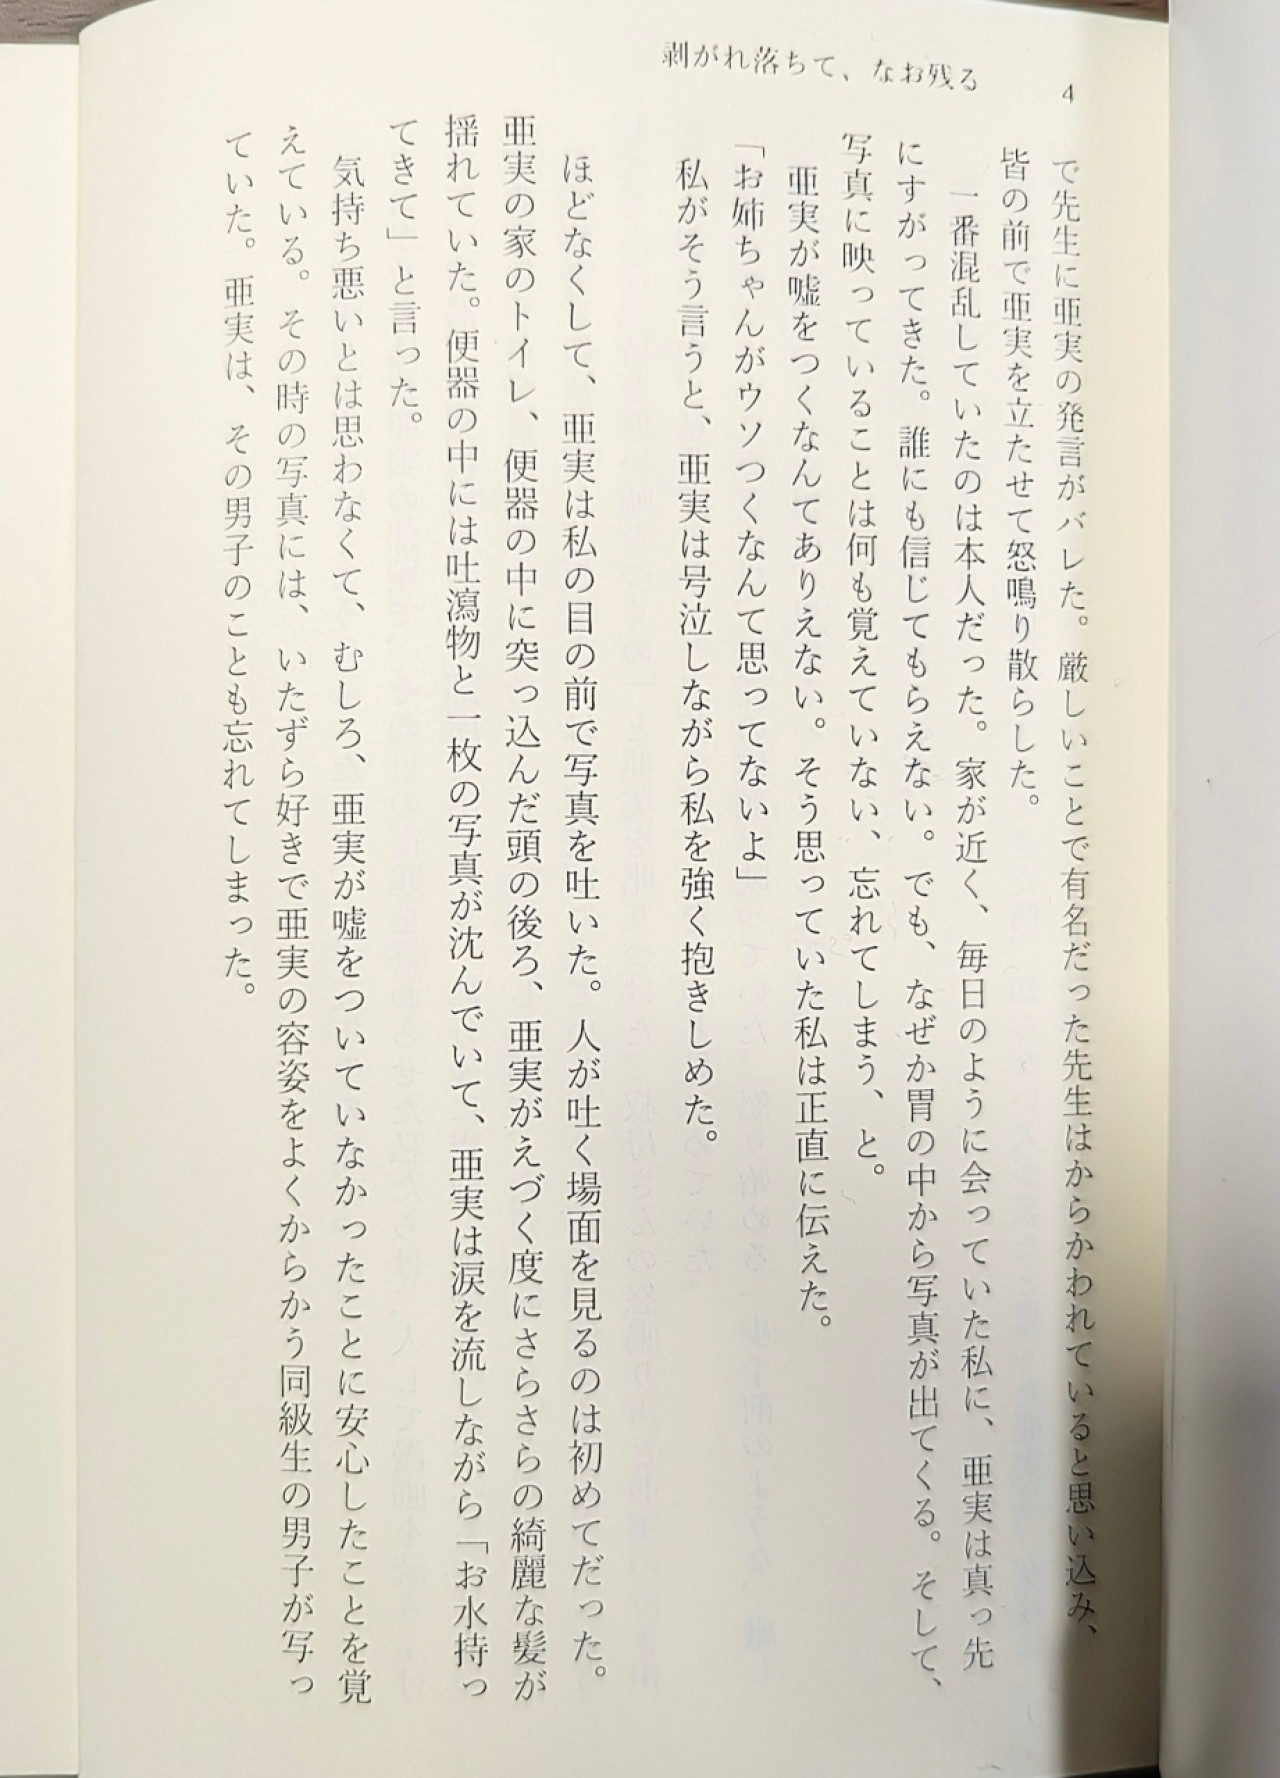 剥がれ落ちて、なお残る
4
で先生に亜実の発言がバレた。厳しいことで有名だった先生はからかわれていると思い込み、
皆の前で亜実を立たせて怒鳴り散らした。
一番混乱していたのは本人だった。家が近く、毎日のように会っていた私に、亜実は真っ先
にすがってきた。誰にも信じてもらえない。でも、なぜか胃の中から写真が出てくる。そして、
写真に映っていることは何も覚えていない、忘れてしまう、と。
亜実が嘘をつくなんてありえない。そう思っていた私は正直に伝えた。
「お姉ちゃんがウソつくなんて思ってないよ」
私がそう言うと、亜実は号泣しながら私を強く抱きしめた。
ほどなくして、亜実は私の目の前で写真を吐いた。人が吐く場面を見るのは初めてだった。
亜実の家のトイレ、便器の中に突っ込んだ頭の後ろ、亜実がえづく度にさらさらの綺麗な髪が
揺れていた。便器の中には吐瀉物と一枚の写真が沈んでいて、亜実は涙を流しながら「お水持っ
てきて」と言った。
気持ち悪いとは思わなくて、むしろ、亜実が嘘をついていなかったことに安心したことを覚
えている。その時の写真には、いたずら好きで亜実の容姿をよくからかう同級生の男子が写っ
ていた。亜実は、その男子のことも忘れてしまった。